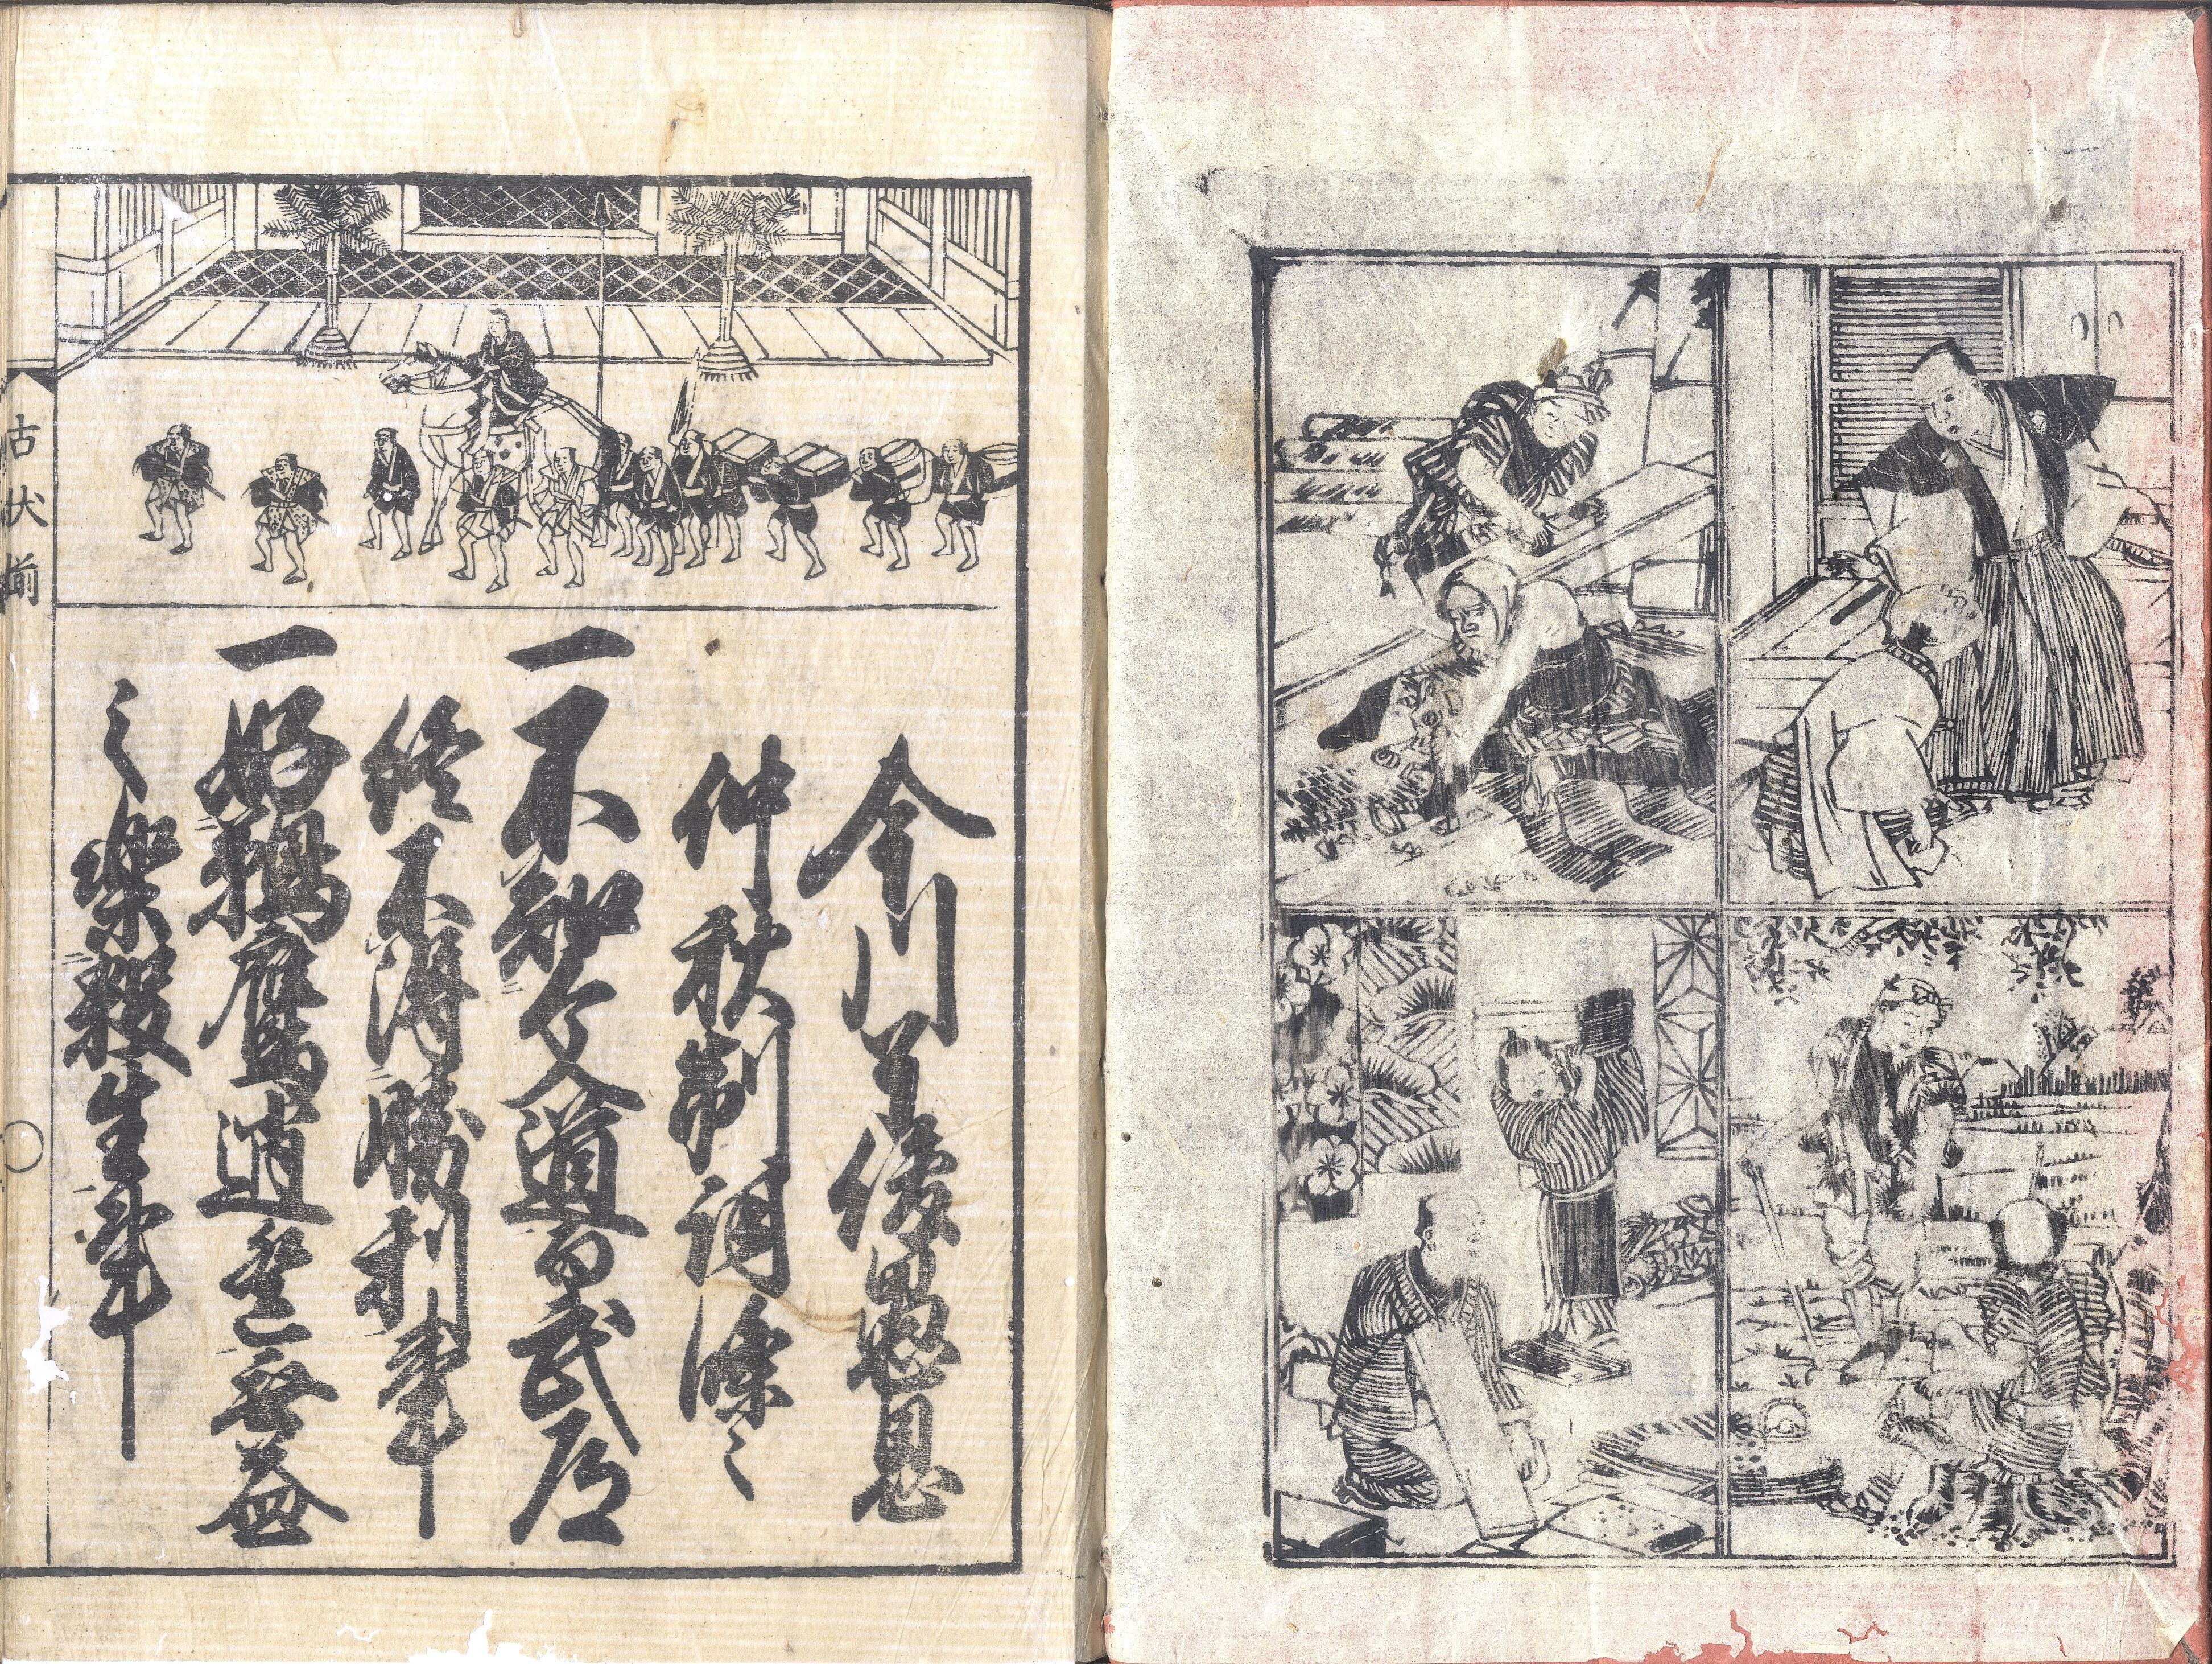 今川了俊愚息
仲秋制詞條々
一不知文道而武道
終不得勝利事
一好鵜鷹逍遥無益
之樂殺生事
古状揃